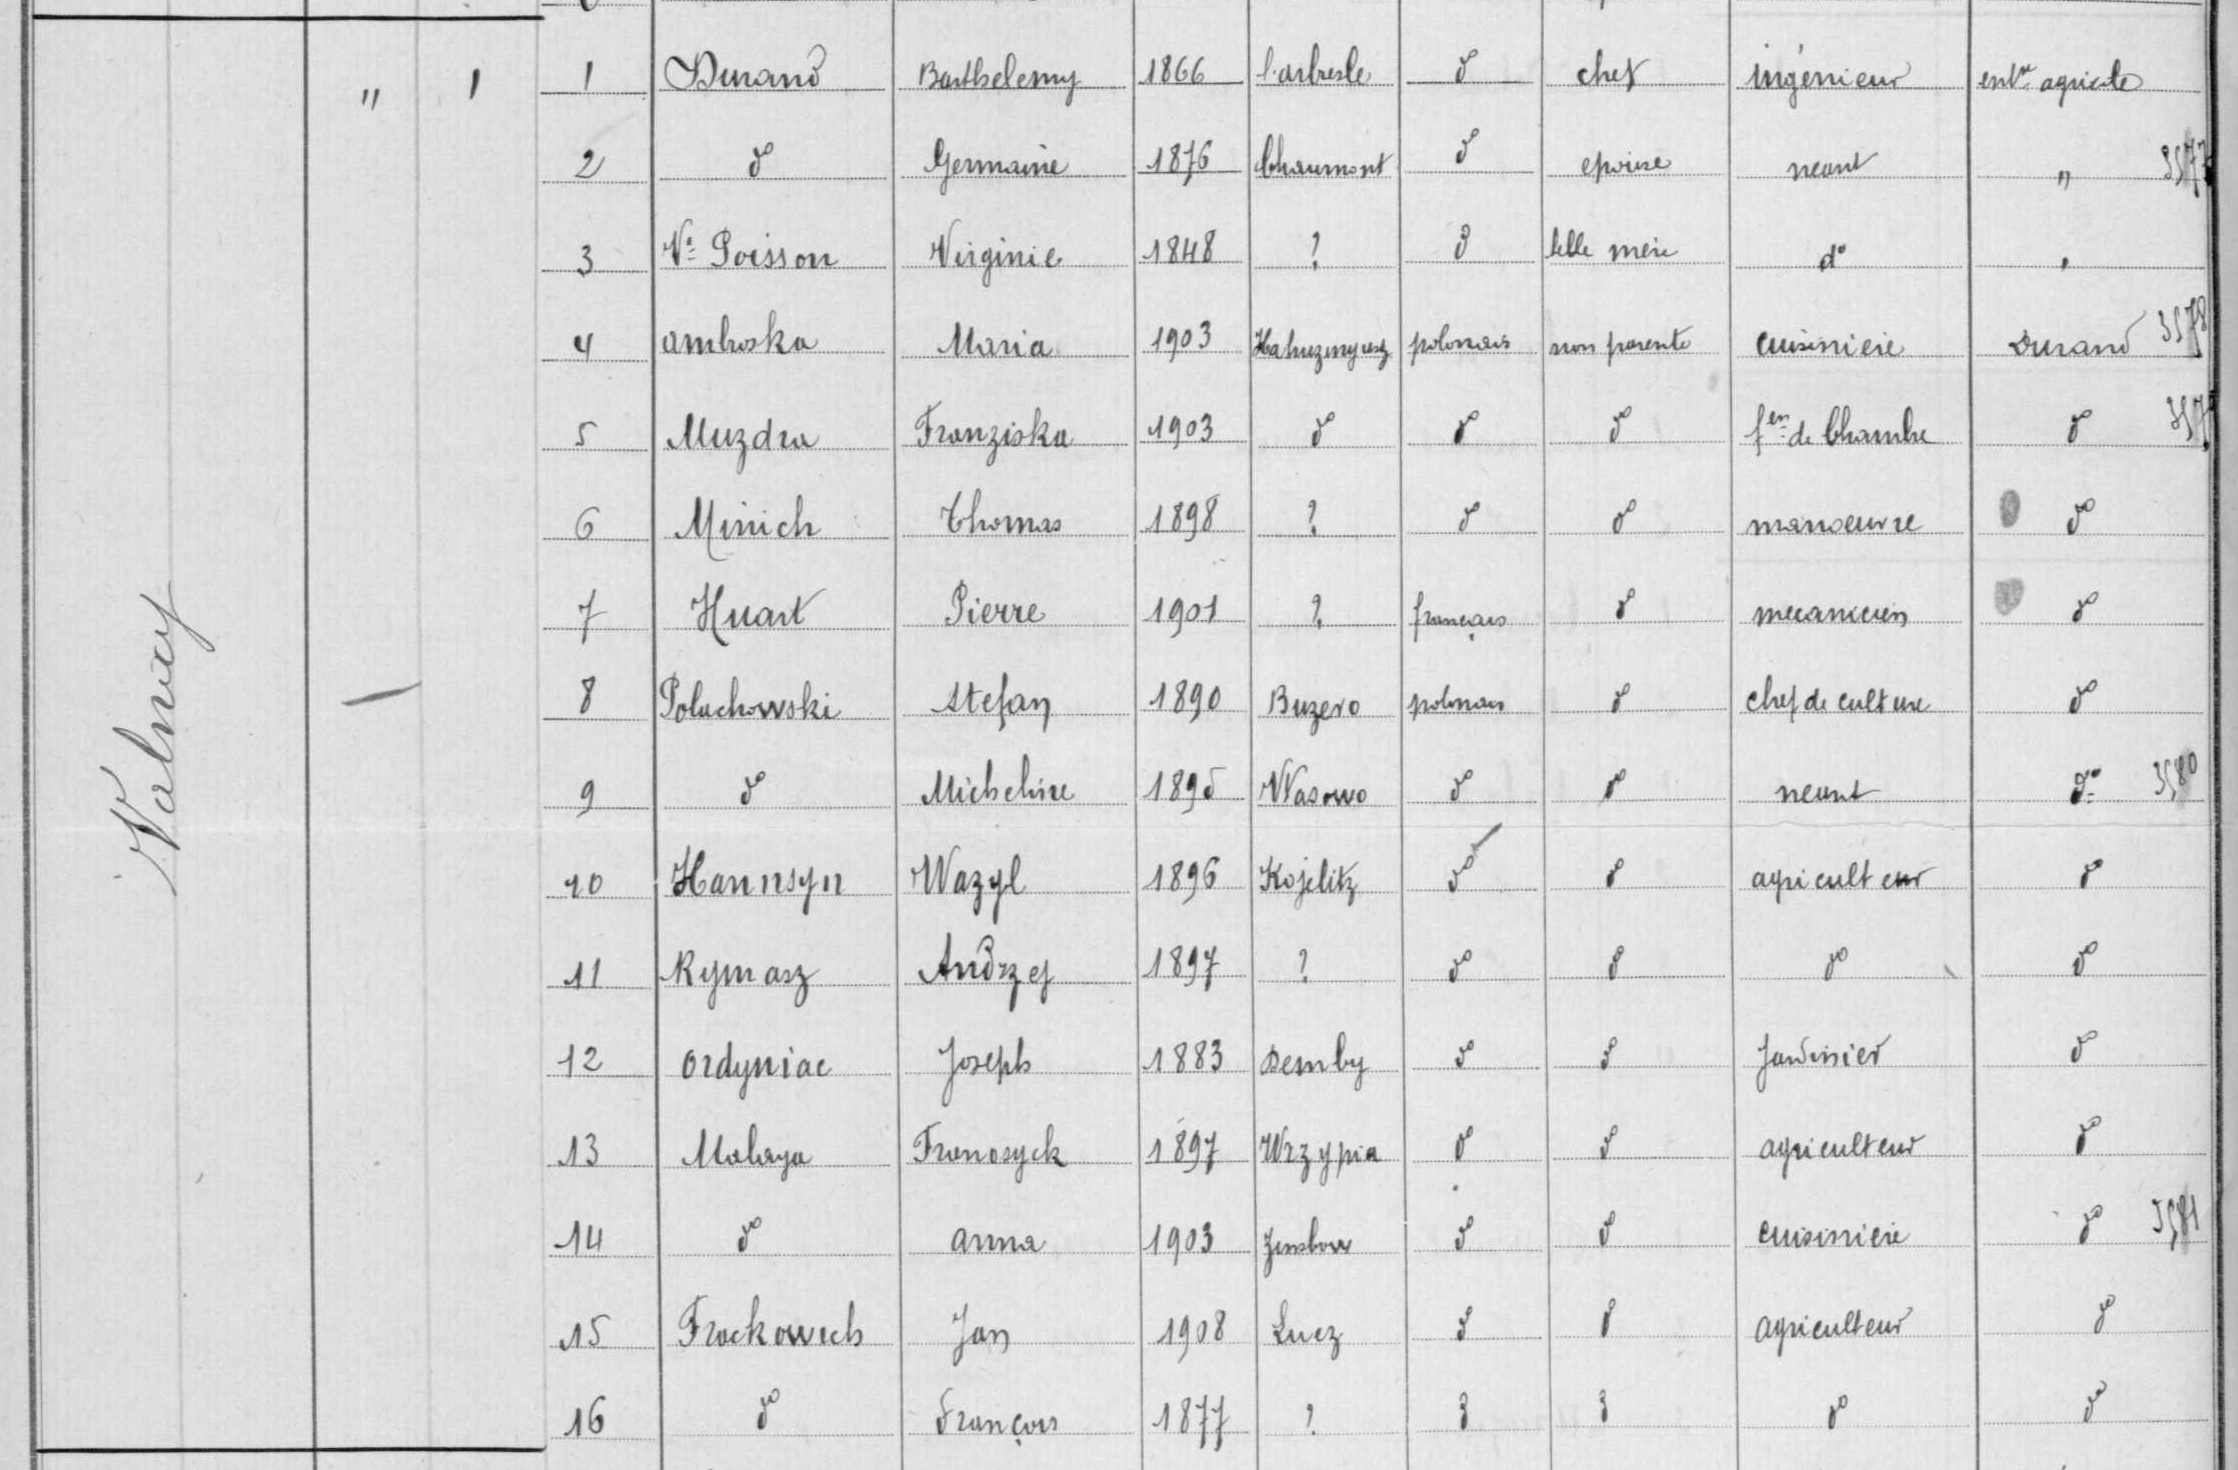 " ' 1 Durand Barthelemy 1866 l'arbresle do chef ingénieur entre agricole
2 do Germaine 1876 Chaumont do epouse neant " 3577
3 Ve Poisson Virginie 1848 ? do belle mère do "
4 ambroska Maria 1903 polonais non parente cuisiniere Durand 3578
5 Muzdra Franziska 1903 do do do fem de Chambre do 357
6 Minich Thomas 1898 ? do do manoeuvre do
7 Huart Pierre 1901 ? français do mecanicien do
8 Poluchowski Stefan 1890 Buzero polonais do chef de culture do
9 do Micheline 1895 Wasowo do do neant do 3580
10 Hannsyn Wazyl 1896 Kojelitz do do agriculteur do
11 Rymasz Andrzej 1897 ? do do do do
12 Ordyniac Joseph 1883 Demby do do Jardinier do
13 Malaya Franosyck 1897 Wrzypia do do agriculteur do
14 do anna 1903 do do cuisiniere do 3581
15 Frackowech Jan 1908 Lucz do do agriculteur do
16 do François 1877 ? do do do do
Valmay